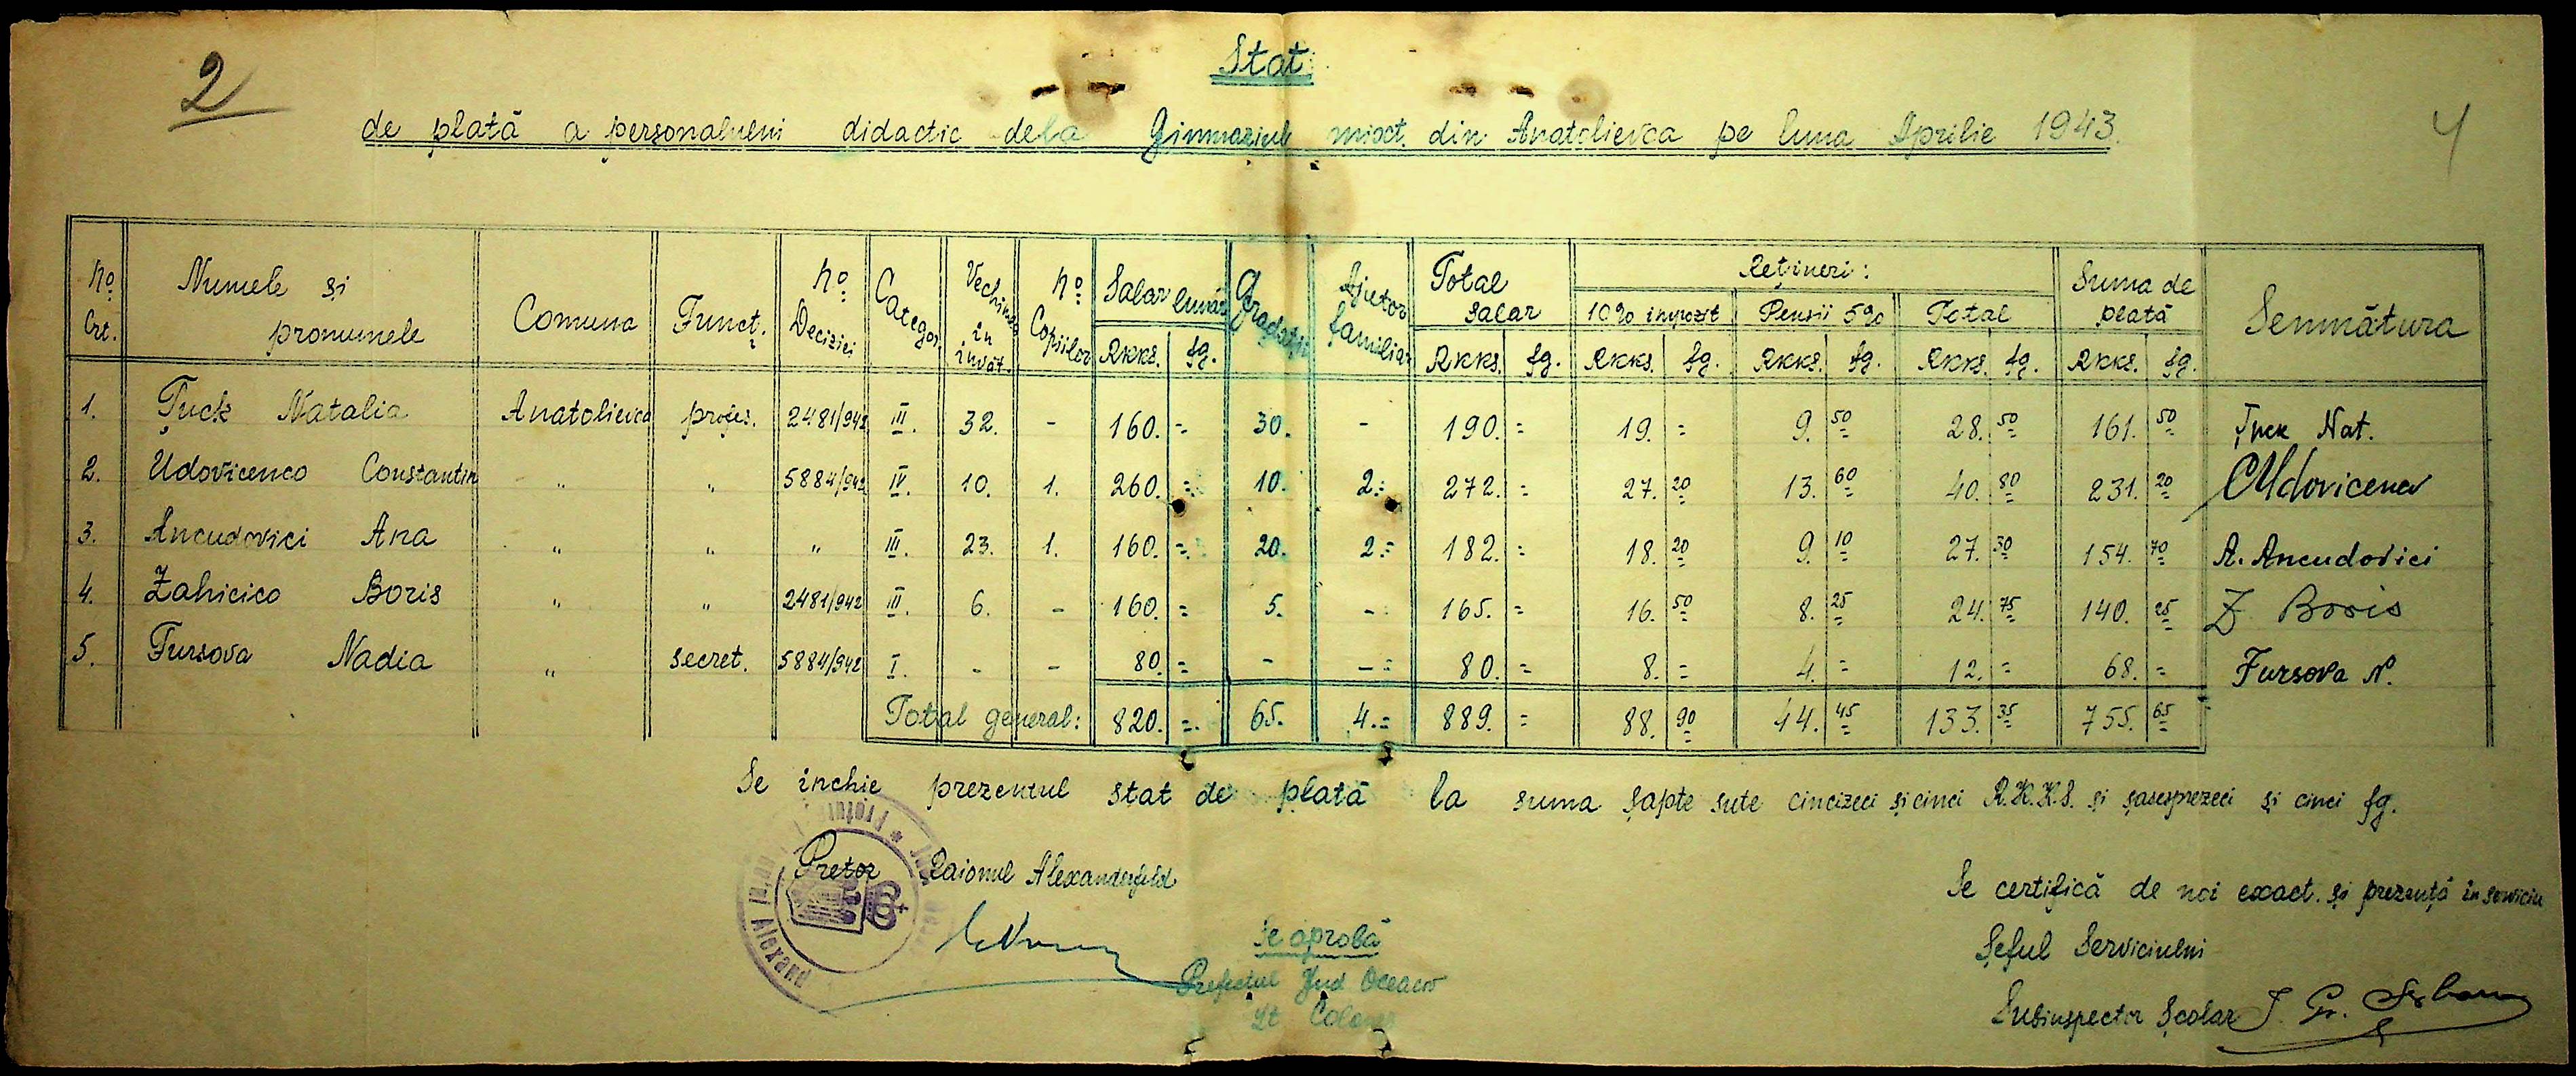 2
Stat
4
de plată a personalului didactic dela Gimnaziul mixt. din Anatolievca pe luna Aprilie 1943.
No Crt. Numele și pronumele Comuna Funcț. No Deciziei Categor. Vechimea în învăț. No Copiilor Salar lunar Gradații Ajutor familiar Total Salar Rețineri: Suma de plată Semnătura
10% impozit Pensii 5% Total
RKKS. fg. RKKS. fg. RKKS. fg. RKKS. fg. RKKS. fg. RKKS. fg.
1. Țuck Natalia Anatolievca profes. 2481/942 III. 32. - 160. = 30. - 190. = 19. = 9. 50 28. 50 161. 50 Țuck Nat.
2. Udovicenco Constantin " " 5884/942 IV. 10. 1. 260. = 10. 2.= 272. = 27. 20 13. 60 40. 80 231. 20
3. Ancudovici Ana " " " III. 23. 1. 160. = 20. 2.= 182. = 18. 20 9. 10 27. 30 154. 70 A. Ancudovici
4. Zahicico Boris " " 2481/942 III. 6. - 160. = 5. - 165. = 16. 50 8. 25 24. 75 140. 25 Z Boris
5. Fursova Nadia " secret. 5884/942 I. - - 80. = - - = 80. = 8. = 4. = 12. = 68. = Fursova N.
Total general: 820. = 65. 4.= 889. = 88. 90 44. 45 133. 35 755. 65
Se inchie prezentul stat de plată la suma șapte sute cincizeci și cinci R.K.K.S. și șasesprezeci și cinci fg.
Pretor Raionul Alexanderfeld
Alexand
Se aprobă
Prefectul Jud Oceacov
Lt Colonel
Se certifică de noi exact. și prezență în serviciu
Șeful Serviciului
Subinspector Școlar